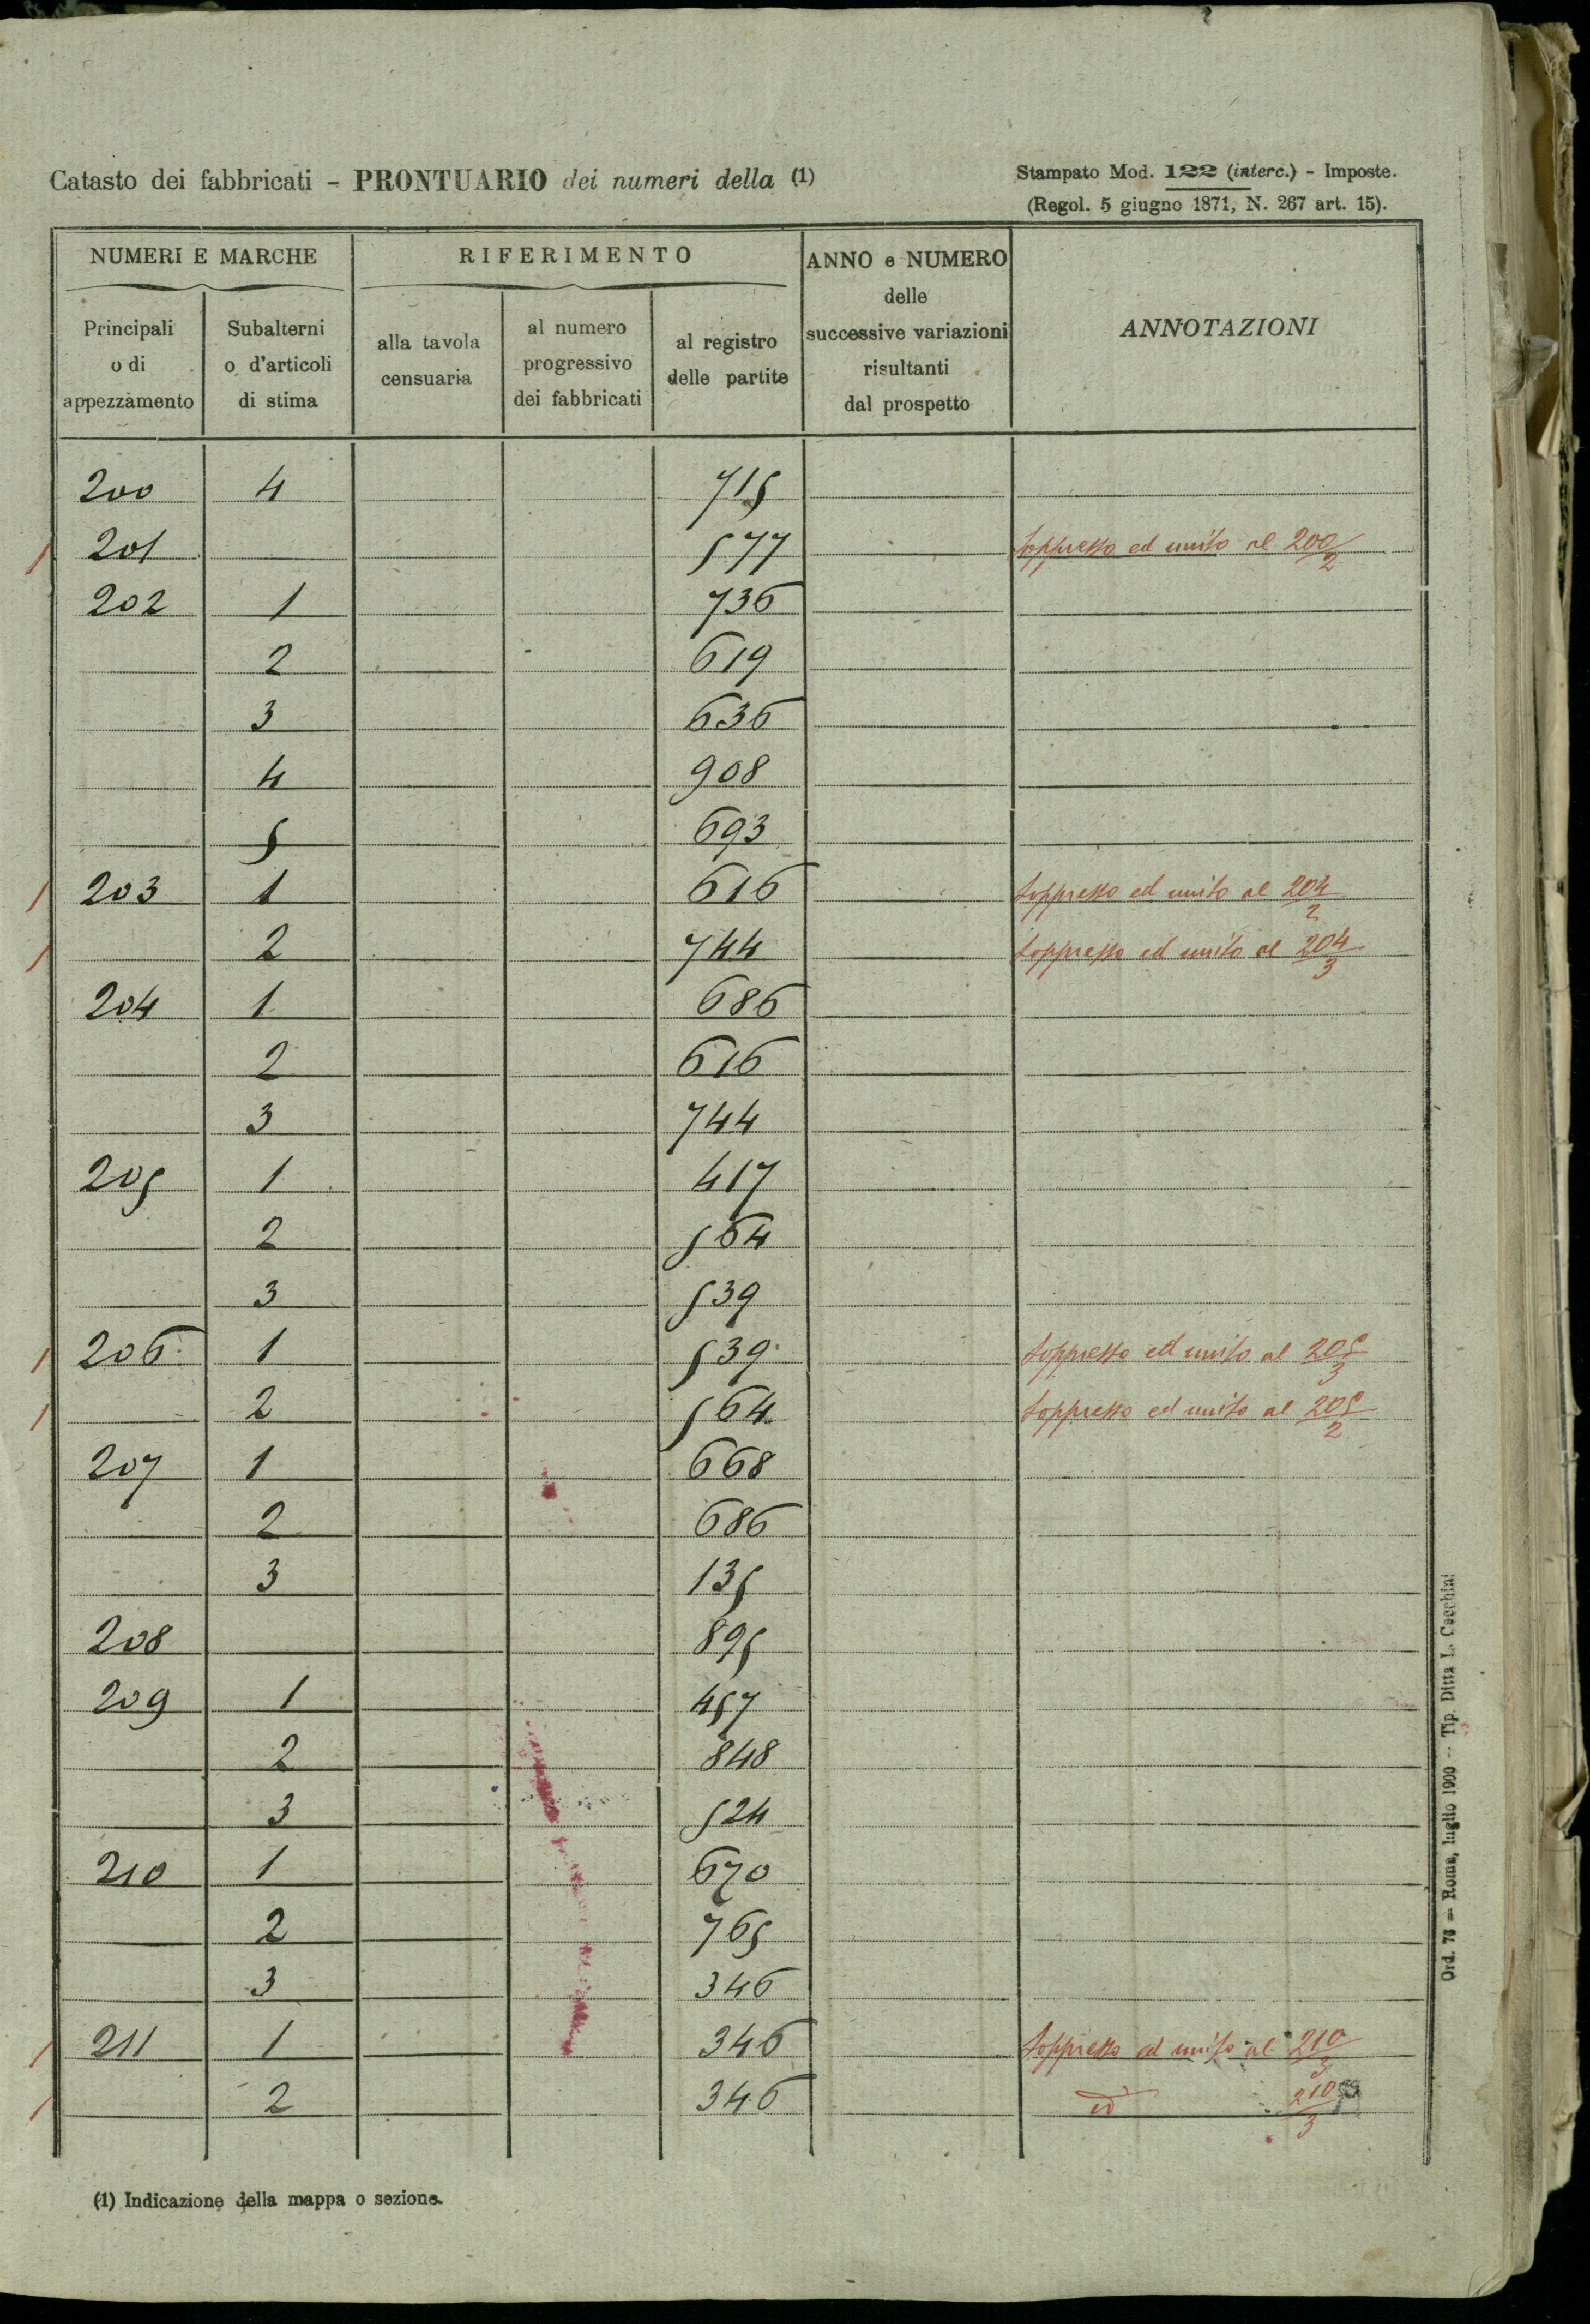 Catasto dei fabbricati - PRONTUARIO dei numeri della (1)
Stampato Mod. 122 (interc.) - Imposte.
(Regol. 5 giugno 1871, N. 267 art. 15).
NUMERI E MARCHE
RIFERIMENTO
ANNO e NUMERO
delle
successive variazioni
risultanti
dal prospetto
ANNOTAZIONI
Principali
o di
appezzamento
Subalterni
o d'articoli
di stima
alla tavola
censuaria
al numero
progressivo
dei fabbricati
al registro
delle partite
200 4 715
201 577 soppresso ed unito al 200/2
202 1 736
2 619
3 636
4 908
5 693
203 1 616 soppresso ed unito al 204/2
2 744 soppresso ed unito al 204/3
204 1 686
2 616
3 744
205 1 417
2 564
3 539
206 1 539 soppresso ed unito al 205/3
2 564 soppresso ed unito al 205/2
207 1 668
2 686
3 135
208 895
209 1 457
2 848
3 524
210 1 670
2 765
3 346
211 1 346 soppresso ed unito al 210/3
2 346 id 210/3
(1) Indicazione della mappa o sezione.
Roma, luglio 1900 -- Tip. Ditta L. Cecchini